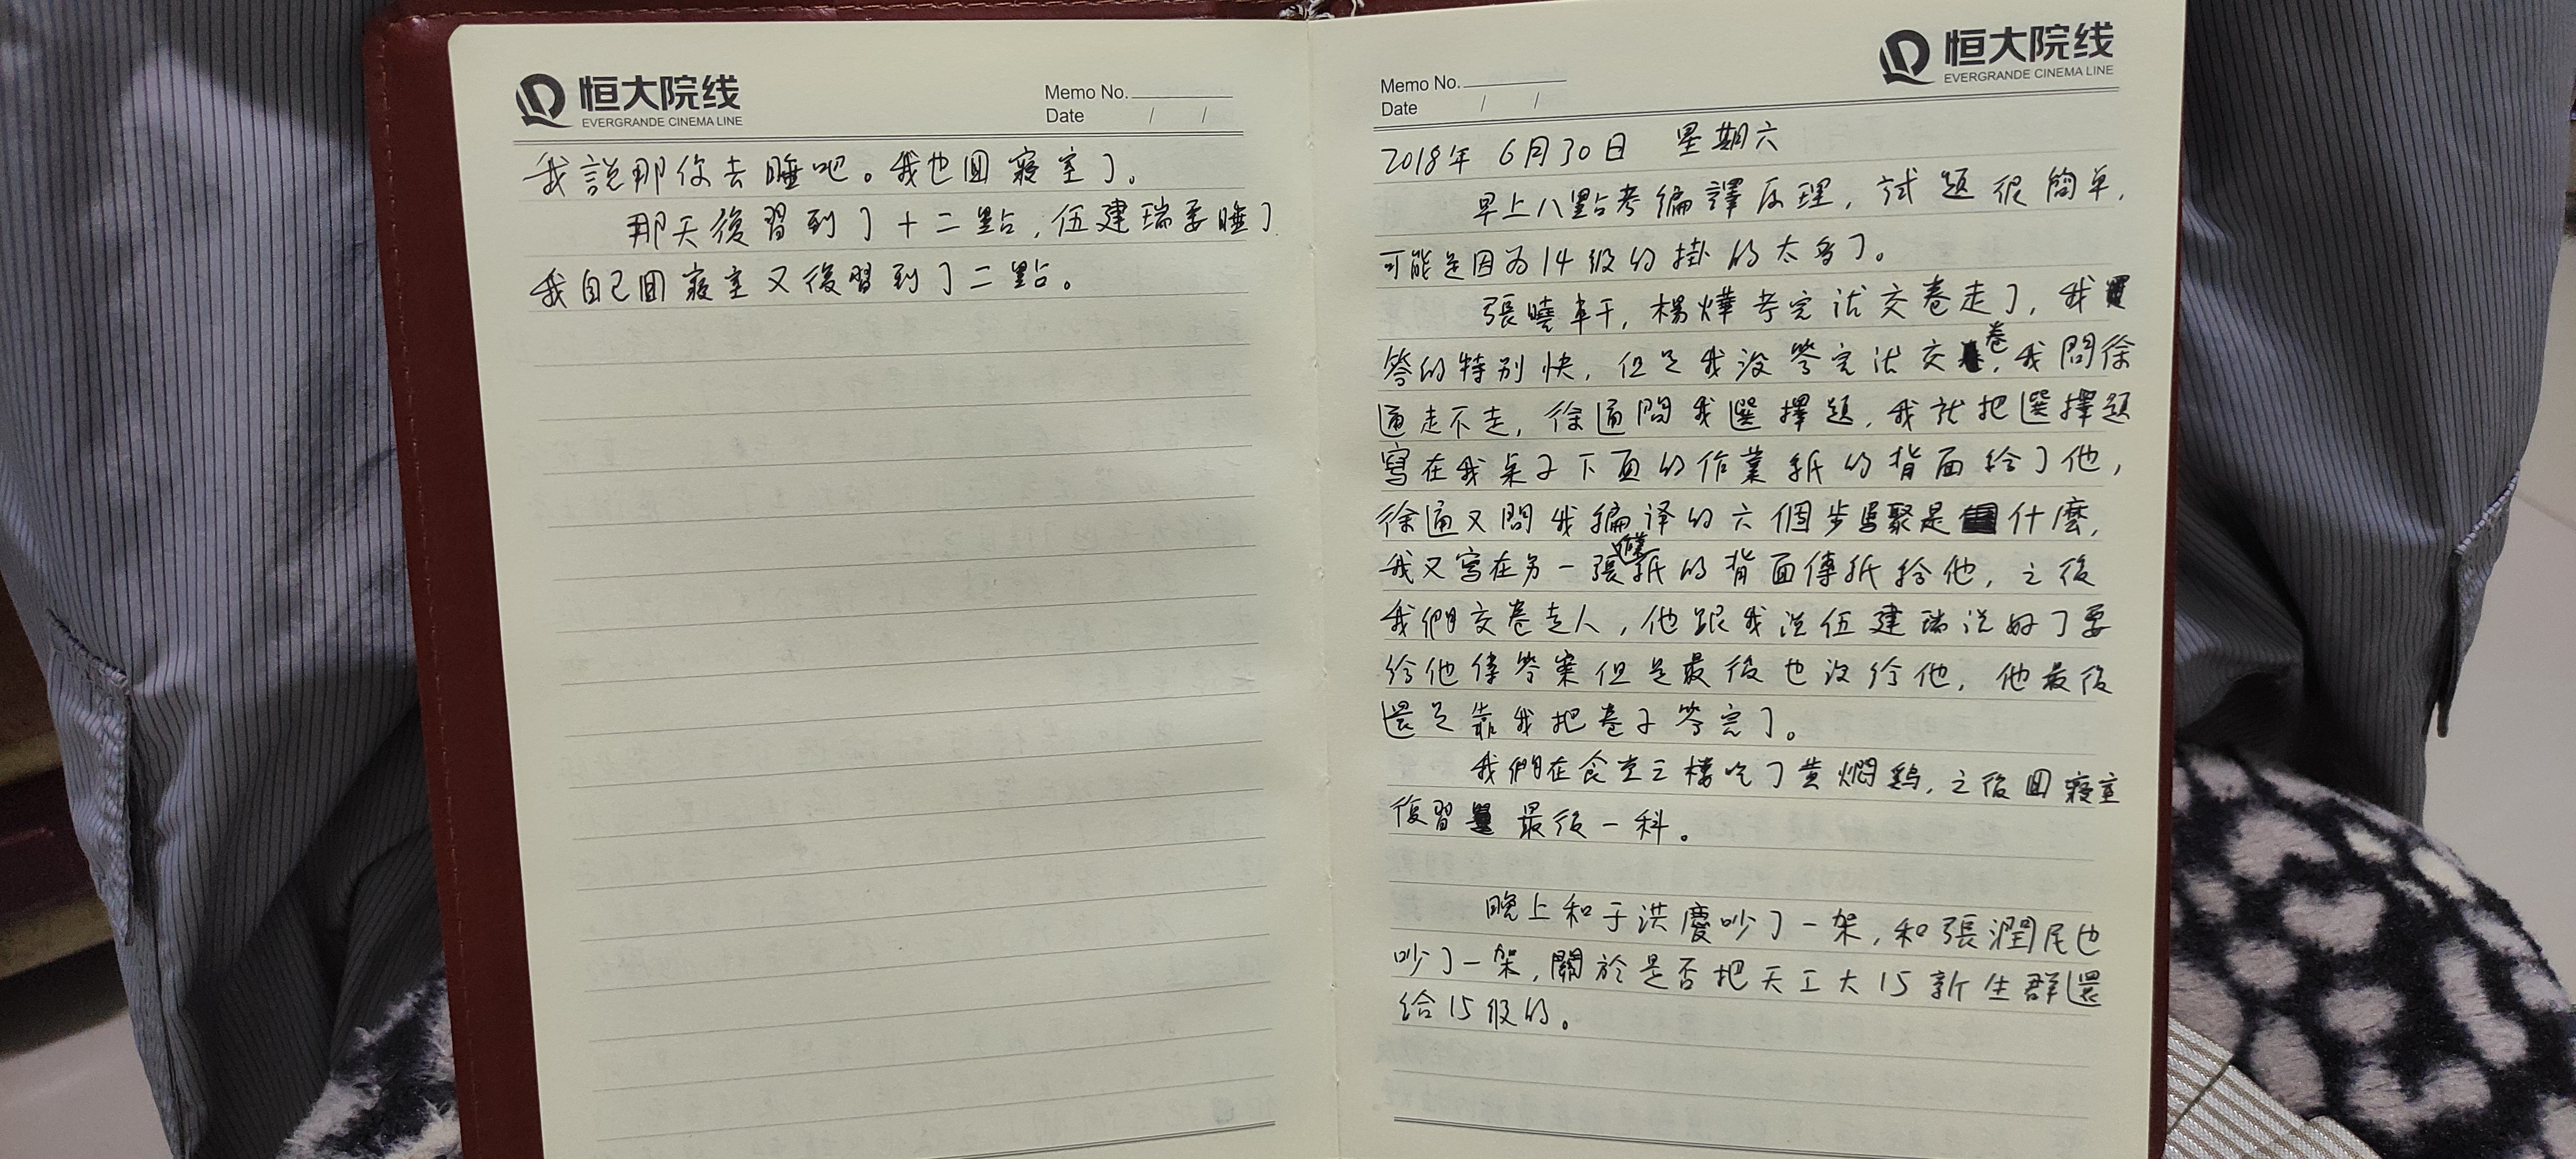 恒大院线
EVERGRANDE CINEMA LINE
Memo No.
Date / /
我說那你去睡吧。我也回寢室了。
那天復習到了十二點，伍建瑞要睡了
我自己回寢室又復習到了二點。
Memo No.
Date / /
恒大院线
EVERGRANDE CINEMA LINE
2018年 6月30日 星期六
早上八點考編譯原理，試題很簡单，
可能是因为14级的掛的太多了。
張曉軒，楊燁考完試交卷走了，我
答的特别快，但是我没答完沒交卷，我問徐
通走不走，徐通問我選擇題，我就把選擇題
寫在我桌子下面的作業紙的背面给了他，
徐通又問我編译的六個步驟是什麼，
我又寫在另一張紙的背面傳紙给他，之後
我們交卷走人，他跟我说伍建瑞说好了要
给他傳答案但是最後也没给他，他最後
還是靠我把卷子答完了。
我們在食堂三樓吃了黄焖鷄，之後回寢室
復習最後一科。
晚上和于洪慶吵了一架，和張潤尾也
吵了一架，關於是否把天工大15新生群還
给15级的。